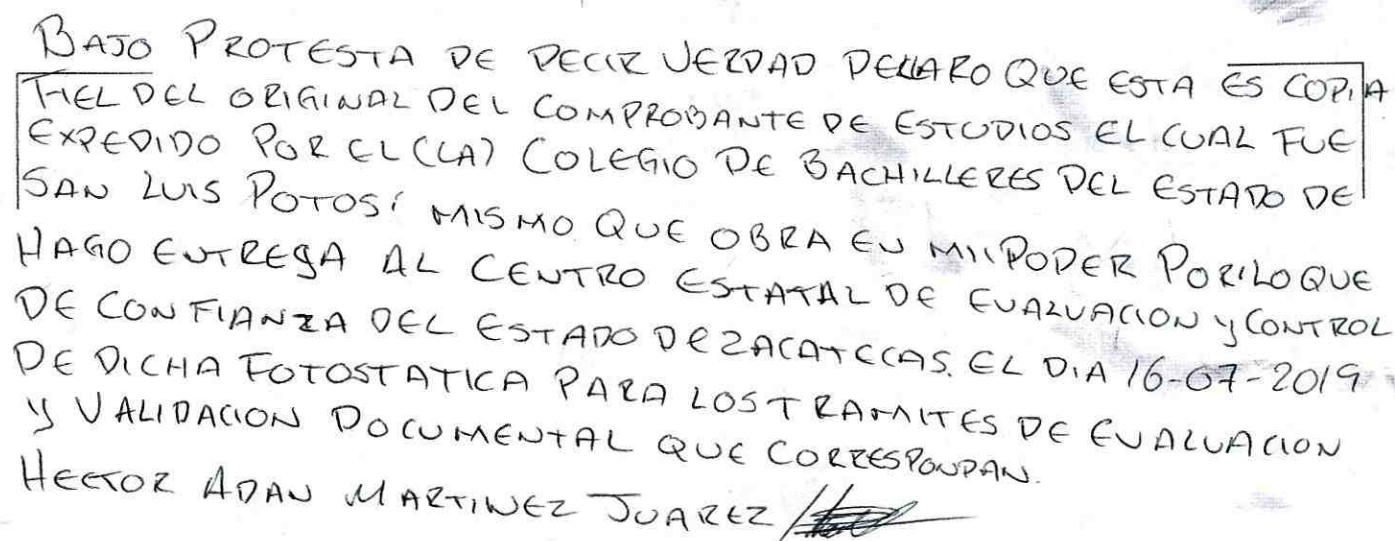 BAJO PROTESTA DE DECIR VERDAD DECLARO QUE ESTA ES COPIA
FIEL DEL ORIGINAL DEL COMPROBANTE DE ESTUDIOS EL CUAL FUE
EXPEDIDO POR EL(LA) COLEGIO DE BACHILLERES DEL ESTADO DE
SAN LUIS POTOSÍ MISMO QUE OBRA EN MI PODER POR LO QUE
HAGO ENTREGA AL CENTRO ESTATAL DE EVALUACION y CONTROL
DE CONFIANZA DEL ESTADO DE ZACATECAS. EL DIA 16-07-2019
DE DICHA FOTOSTATICA PARA LOS TRAMITES DE EVALUACION
y VALIDACION DOCUMENTAL QUE CORRESPONDAN.
HECTOR ADAN MARTINEZ JUAREZ